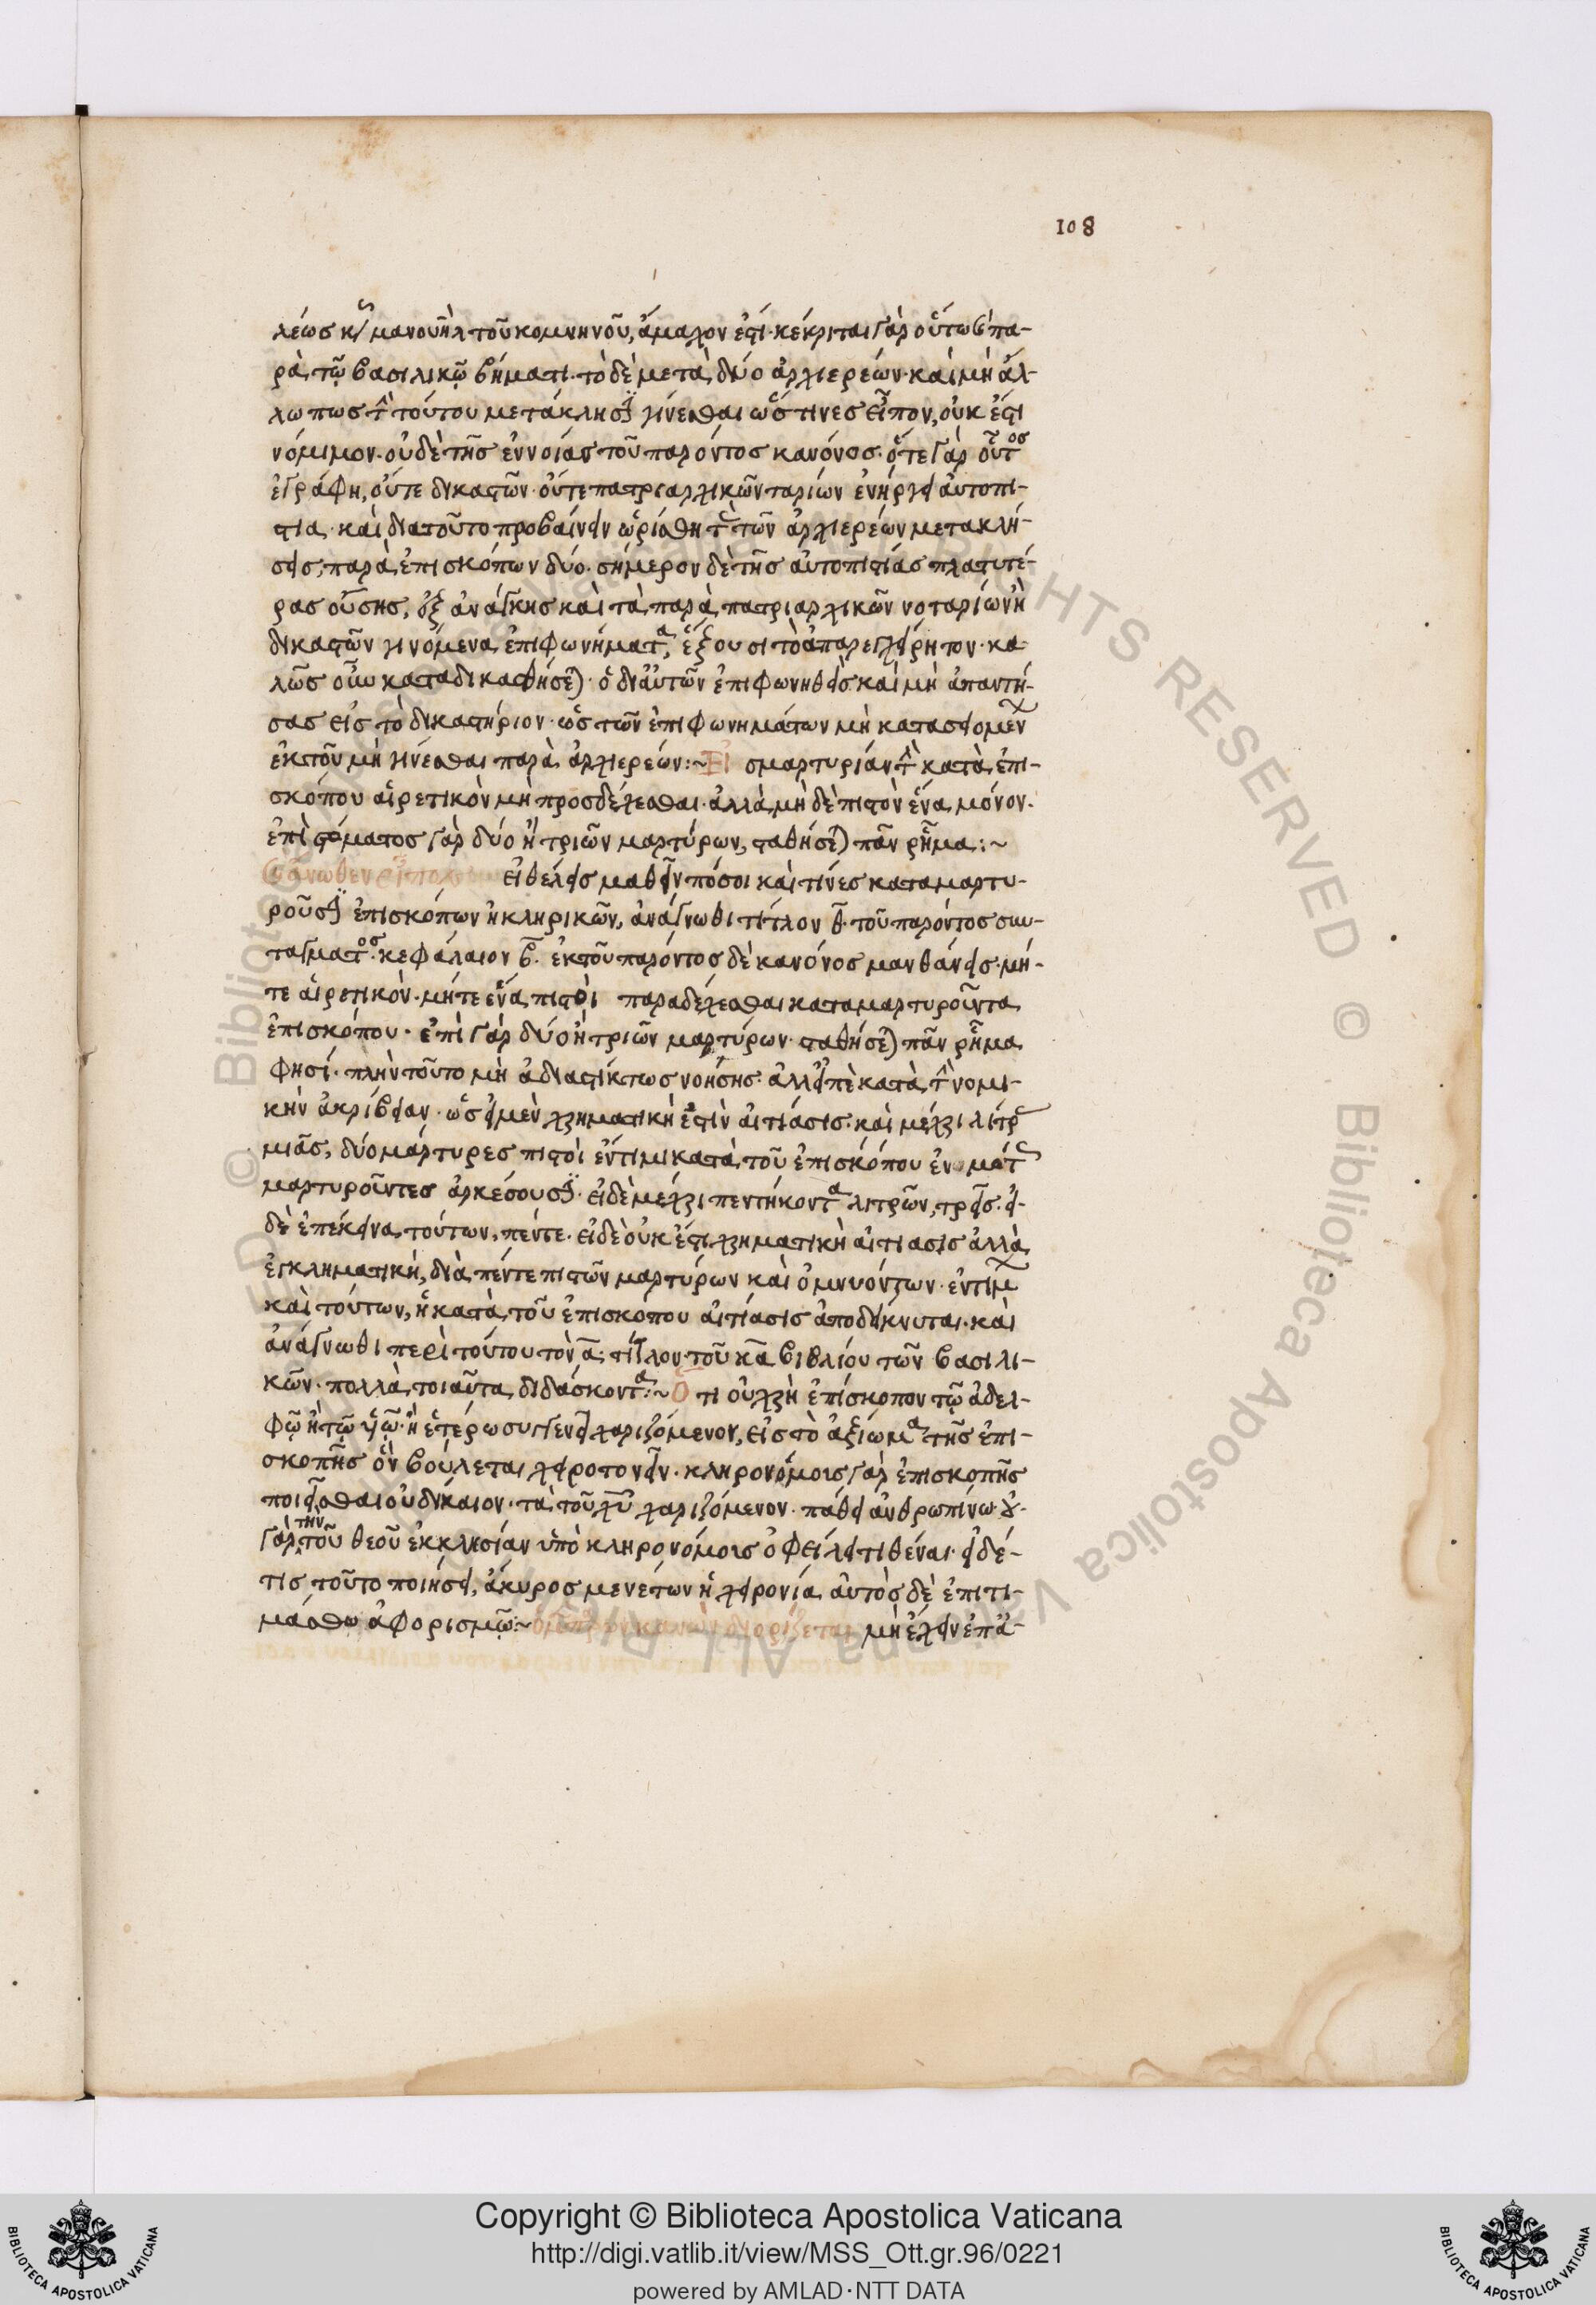 108
λέωσ κ(υ) μανουὴλ τοῦ κομνηνοῦ, ἄμαχον ἐστί· κέκριται γὰρ οὕτωσ πα-
ρὰ τῷ βασιλικῷ βήματι· τὸ δὲ μετὰ δύο ἀρχιερέων· καὶ μὴ ἄλ-
λωπωσ τ(ὴν) τούτου μετάκλησϊν γίνεσθαι ὥς τινεσ εἶπον, οὐκ ἔστι
νόμιμον· οὐδὲ τῆσ ἐννοίασ τοῦ παρόντοσ κανόνοσ· ὅτε γὰρ οὗτοσ
ἐγράφη, οὔτε δικαστῶν· οὔτε πατριαρχικῶν ταρίων ἐνήργει αὐτοπι-
στία· καὶ διατοῦτο προβαίνειν ὡρίσθη τ(ὰσ) τῶν ἀρχιερέων μετακλή-
σεισ, παρὰ ἐπισκόπων δύο· σήμερον δὲ τῆσ αὐτοπιστίασ πλατυτέ-
ρασ οὔσησ, ἐξ ἀνάγκησ καὶ τὰ παρὰ πατριαρχικῶν νοταρίων ἢ
δικαστῶν γινόμενα ἐπιφωνήματα, ἕξουσι τὸ ἀπαρεγχείρητον· κα
λῶσ οὖν καταδικασθήσε(ται)· ὁ δι αὐτῶν ἐπιφωνηθεὶσ καὶ μὴ ἀπαντή-
σασ εἰσ τὸ δικαστήριον· ὡσ τῶν ἐπιφωνημάτων μὴ κατασειομέν(ων)
ἐκτοῦ μὴ γίνεσθαι παρὰ ἀρχιερέων:~ Εἰ σμαρτυρίαν τ(ὴν) κατὰ ἐπι-
σκόπου αἱρετικὸν μὴ προσδέχεσθαι· ἀλλὰ μὴ δὲ πιστὸν ἕνα μόνον·
ἐπὶ στόματοσ γὰρ δύο ἢ τριῶν μαρτύρων, σταθήσε(ται) πᾶν ρῆμα:~
εἰ θέλεισ μαθεῖν πόσοι καὶ τίνεσ καταμαρτυ-
ροῦσϊν ἐπισκόπων ἢ κληρικῶν, ἀνάγνωθι τίτλον θ· τοῦ παρόντοσ συν-
τάγματοσ· κεφάλαιον β· ἐκτοῦ παρόντοσ δὲ κανόνοσ μανθάνεισ· μή-
τε αἱρετικὸν· μήτε ἕνα πιστὸι παραδέχεσθαι καταμαρτυροῦντα
ἐπισκόπου· ἐπὶ γὰρ δύο ἢ τριῶν μαρτύρων· σταθήσε(ται) πᾶν ρῆμα
φησί· πλὴν τοῦτο μὴ ἀδιαστίκτωσ νοήσησ· ἀλλ εἰπὲ κατὰ τ(ὴν) νομι-
κὴν ἀκρίβειαν· ὡσ εἰ μὲν χρηματικὴ ἐστὶν αἰτίασισ· καὶ μέχρι λίτρ(ασ)
μιᾶσ, δύο μάρτυρεσ πιστοὶ ἔντιμι κατὰ τοῦ ἐπισκόπου
μαρτυροῦντεσ ἀρκέσουσϊν· εἰ δὲ μέχρι πεντήκοντα λιτρῶν, τρεῖσ· εἰ
δὲ ἐπέκεινα τούτων, πέντε· εἰ δὲ οὐκ ἔστι χρηματικὴ αἰτιασισ ἀλλὰ
ἐγκληματική, διὰ πέντε πιστῶν μαρτύρων καὶ ὀμνυόντων· ἐντίμ(ων)
καὶ τούτων, ἡ κατὰ τοῦ ἐπισκόπου αἰτίασισ ἀποδείκνυται· καὶ
ἀνάγνωθι περὶ τούτου τὸν α· τίτλον τοῦ κα βιβλίου τῶν βασιλι-
κῶν· πολλὰ τοιαῦτα διδάσκοντα:~ Ὅ τι οὐ χρὴ ἐπίσκοπον τῷ ἀδελ-
φῷ ἢ τῷ ὑῷ· ἢ ἑτέρω συγγενεῖ χαριζόμενον, εἰσ τὸ ἀξίωμα τῆσ ἐπι-
σκοπῆσ ὃν βούλεται χειροτονεῖν· κληρονόμοισ γὰρ ἐπισκοπῆσ
ποιεῖσθαι οὐ δίκαιον· τὰ τοῦ χυ χαριζόμενον· πάθει ἀνθρωπίνω· οὐ
γὰρ τὴν τοῦ θεοῦ ἐκκλησίαν ὑπὸ κληρονόμοισ ὀφείλει τιθέναι· εἰ δέ-
τισ τοῦτο ποιήσει, ἄκυροσ μενετων ἡ χειρονία αὐτὸσ δὲ ἐπιτι-
μάσθω ἀφορισμῷ:~ ὁμπρ ων κανὼν διορίζεται μὴ ἔχειν ἐπ ἀ-
Copyright © Biblioteca Apostolica Vaticana
http://digi.vatlib.it/view/MSS_Ott.gr.96/0221
powered by AMLAD·NTT DATA